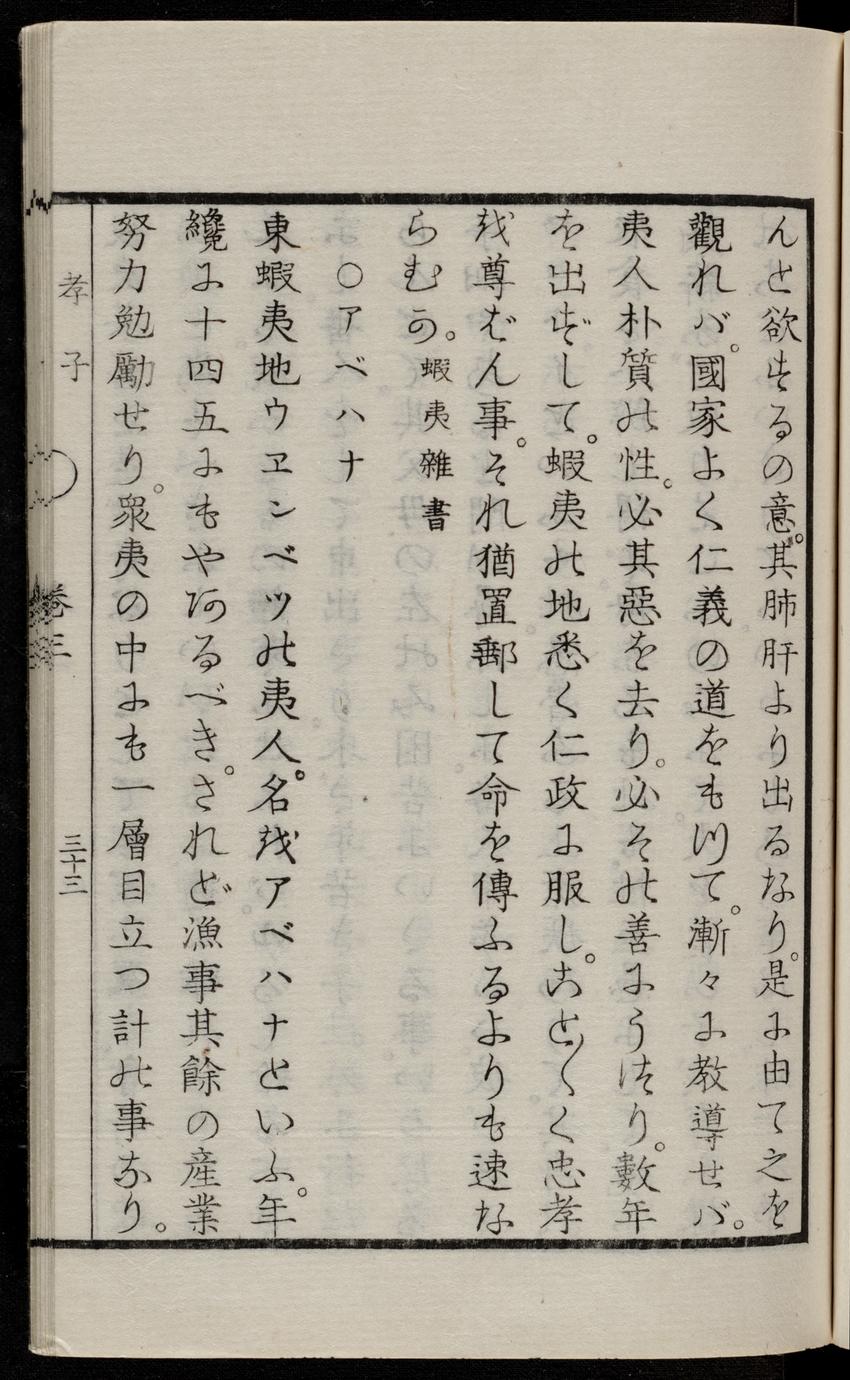 んと欲するの意。其肺肝より出るなり。是に由て之を
觀れバ。國家よく仁義の道をもつて。漸々に教導せバ。
夷人朴質の性。必其惡を去り。必その善にうつり。數年
を出ずして。蝦夷の地悉く仁政に服し。こと〴〵く忠孝
を尊ばん事。それ猶置郵して命を傳ふるよりも速な
らむか。蝦夷雜書
〇アベハナ
東蝦夷地ウヱンベツの夷人。名をアベハナといふ。年
纔に十四五にもやあるべき。されど漁事其餘の産業
努力勉勵せり。衆夷の中にも一層目立つ計の事なり。
孝子 卷三 三十三